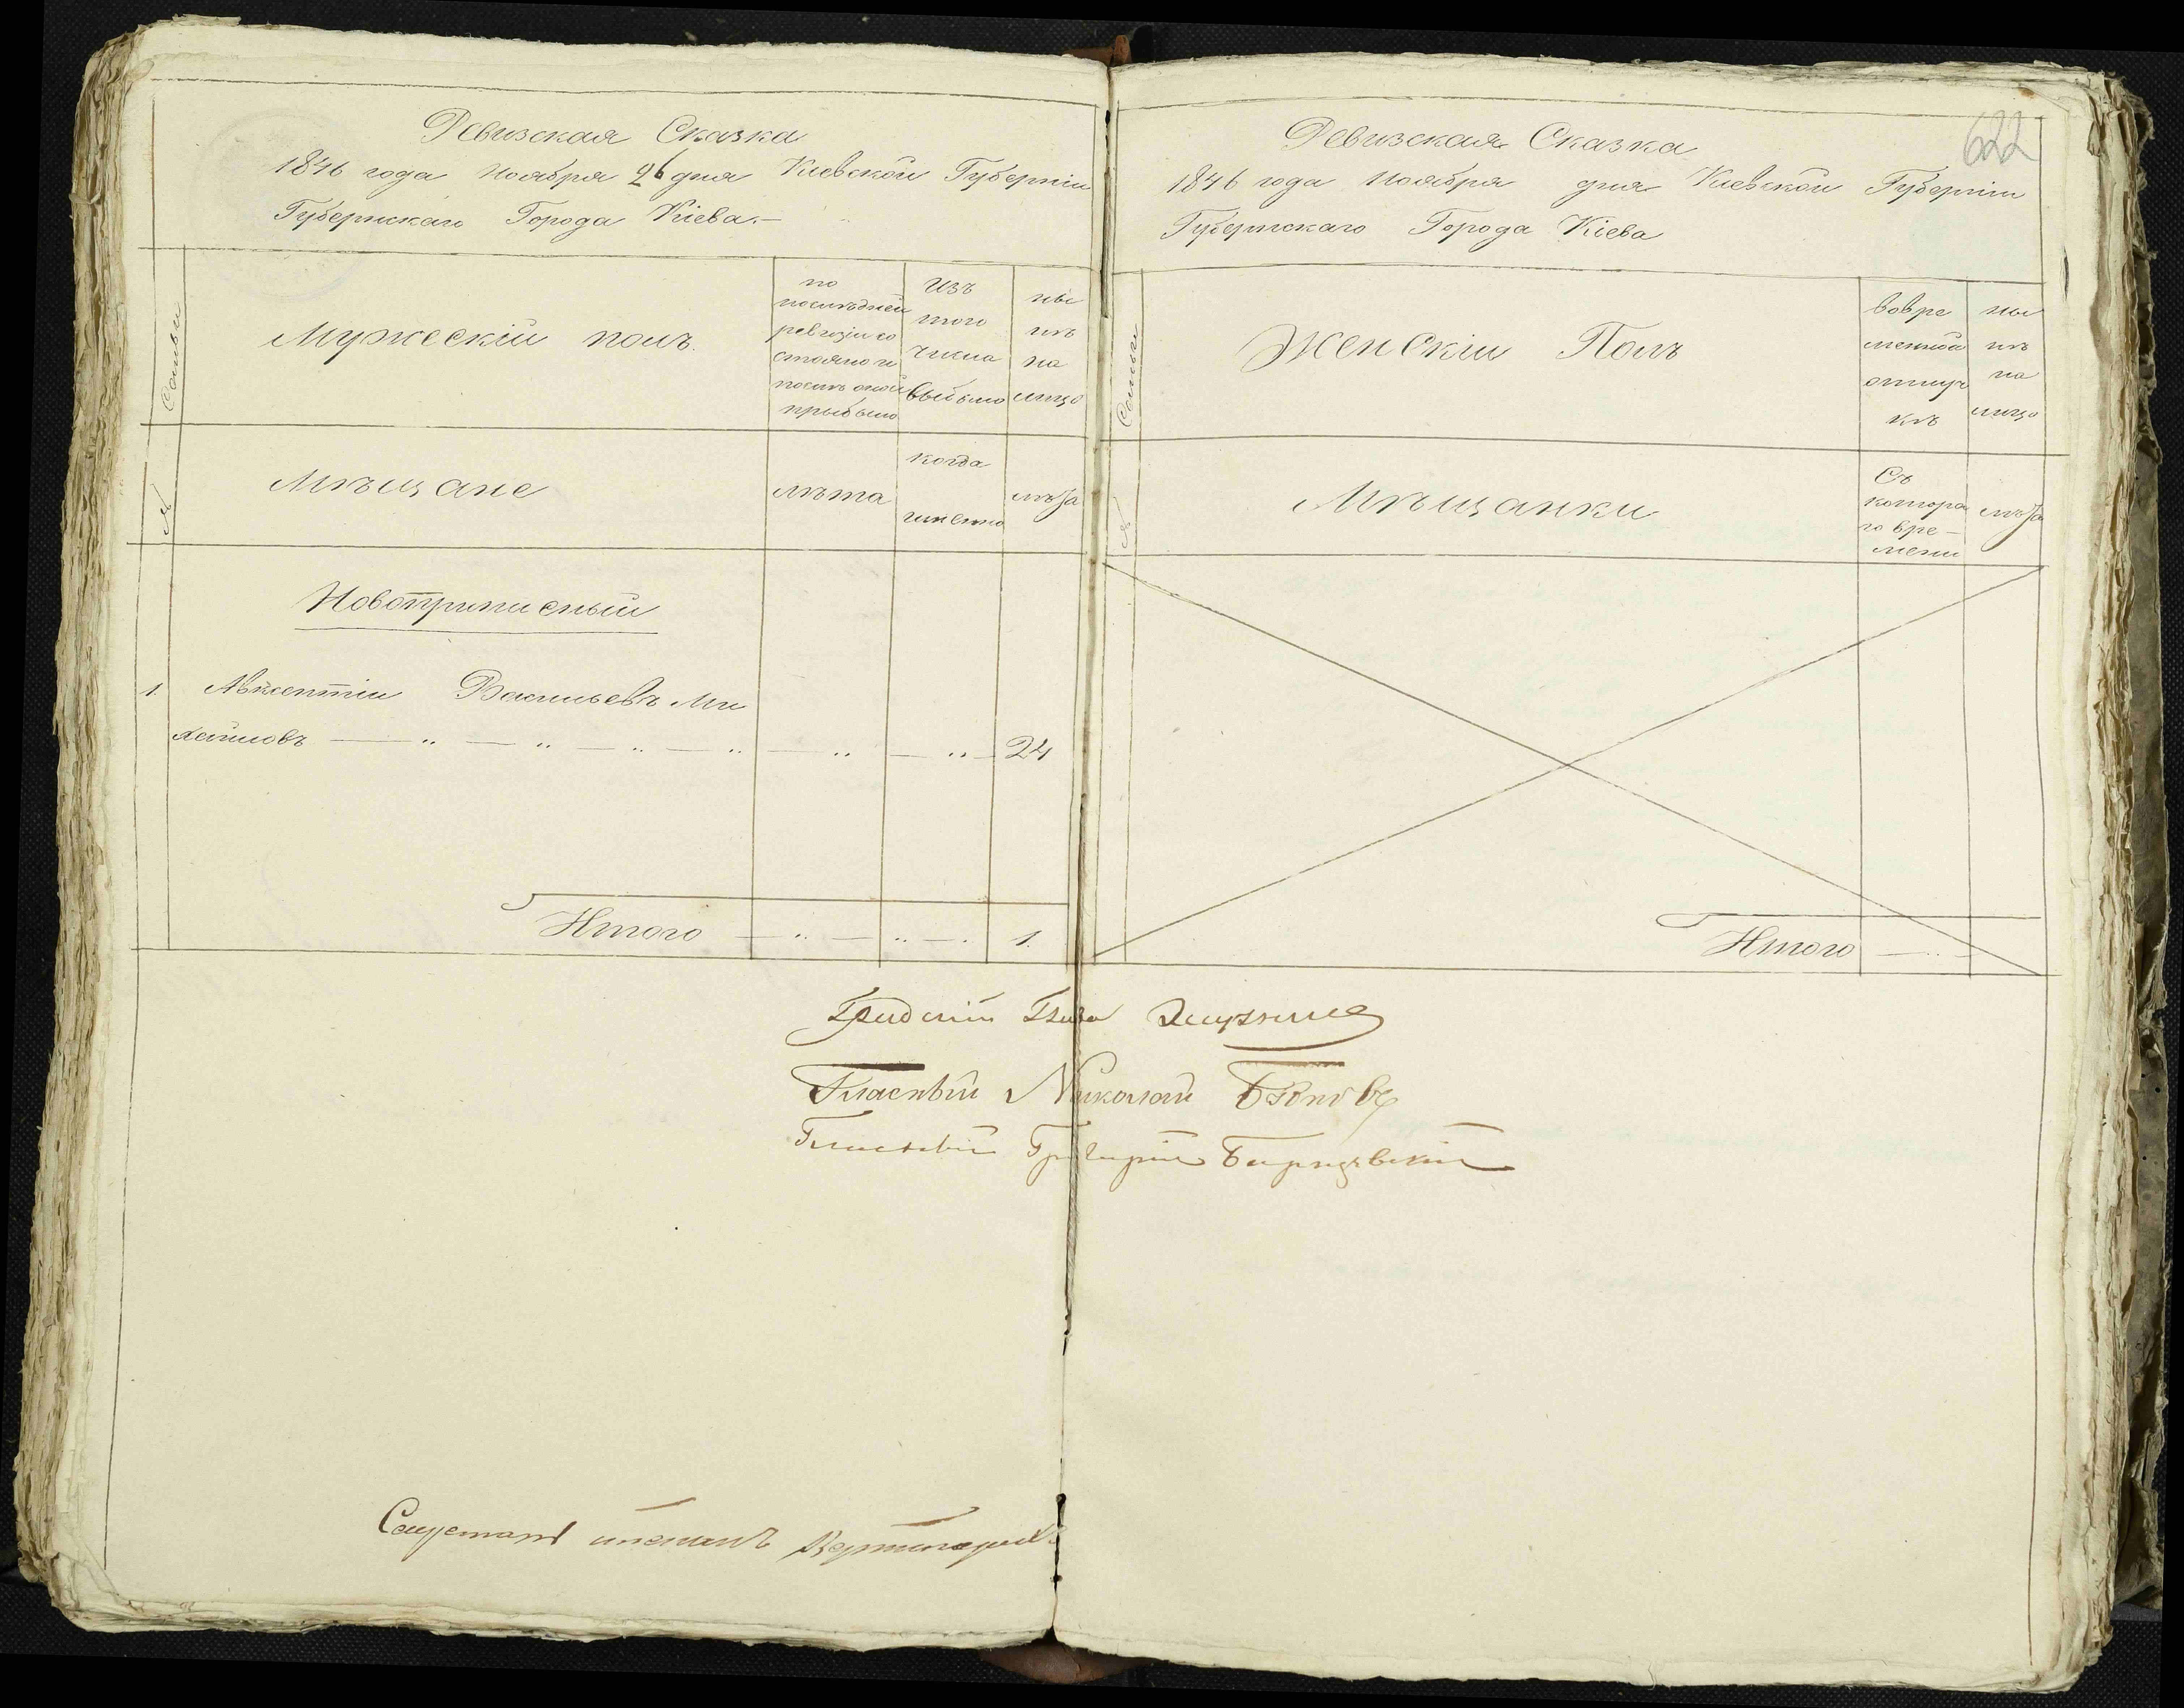 Ревизская Сказка
1846 года Ноября 26 дня Киевской Губерніи
Губернскаго Города Кіева.—
Семьи
Мужескій полъ.
по
послѣдней
ревизіи со
стояло и
послѣ оной
прибыло
изъ
того
числа
выбыло
ны
нѣ
на
лицо
№
Мѣщане
лѣта
когда
именно
лѣта
Новоприписный
1. Авксентій Васильевъ Ми
хайловъ — „ — „ — „ — „ — „ — „ — 24
Итого — „ — „ — „ 1.
622
Ревизская Сказка
1846 года Ноября дня Киевской Губерніи
Губернскаго Города Кіева
Семьи
Женскій Полъ
вовре
менной
отлуч
кѣ
ны
нѣ
на
лицо
№
Мѣщанки
Съ
котора
го вре—
мени
лѣта
Итого — „ —
Градскій Глава
Гласный Николай
Гласный Григорій